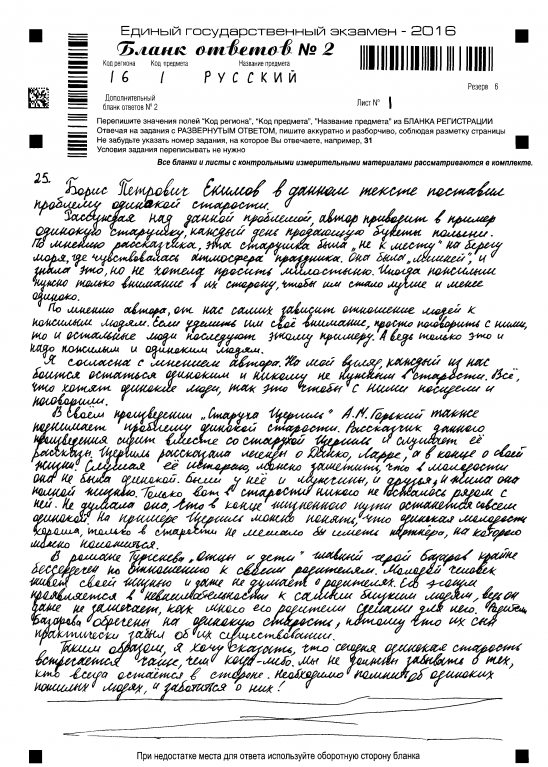 Единый государственный экзамен - 2016
Бланк ответов № 2
Код региона Код предмета Название предмета
16 1 РУССКИЙ
Резерв 6
Дополнительный
бланк ответов № 2
Лист № 1
Перепишите значения полей "Код региона", "Код предмета", "Название предмета" из БЛАНКА РЕГИСТРАЦИИ
Отвечая на задания с РАЗВЕРНУТЫМ ОТВЕТОМ, пишите аккуратно и разборчиво, соблюдая разметку страницы
Не забудьте указать номер задания, на которое Вы отвечаете, например, 31
Условия задания переписывать не нужно
Все бланки и листы с контрольными измерительными материалами рассматриваются в комплекте.
25. Борис Петрович Екимов в данном тексте поставил
проблему одинокой старости.
Рассуждая над данной проблемой, автор приводит в пример
одинокую старушку, каждый день продающую букеты полыни.
По мнению рассказчика, эта старушка была "не к месту" на берегу
моря, где чувствовалась атмосфера праздника. Она была "лишней", и
знала это, но не хотела просить милостыню. Иногда пожилым
нужно только внимание в их сторону, чтобы им стало лучше и менее
одиноко.
По мнению автора, от нас самих зависит отношение людей к
пожилым людям. Если уделить им своё внимание, просто поговорить с ними,
то и остальные люди последуют этому примеру. А ведь только это и
надо пожилым и одиноким людям.
Я согласна с мнением автора. На мой взгляд, каждый из нас
боится остаться одиноким и никому не нужным в старости. Всё,
что хотят одинокие люди, так это чтобы с ними посидели и
поговорили.
В своём произведении "Старуха Изергиль" А.М. Горький также
поднимает проблему одинокой старости. Рассказчик данного
произведения сидит вместе со старухой Изергиль и слушает её
рассказы. Изергиль рассказала легенды о Данко, Ларре, а в конце о своей
жизни. Слушая её историю, можно заметить, что в молодости
она не была одинокой. Были у неё и мужчины, и друзья, и жила она
полной жизнью. Только вот в старости никого не осталось рядом с
ней. Не думала она, что в конце жизненного пути останется совсем
одинокой. На примере Изергиль можно понять, что одинокая молодость
хороша, только в старости не мешало бы иметь партнёра, на которого
можно положится.
В романе Тургенева "Отцы и дети" главный герой Базаров крайне
бессердечен по отношению к своим родителям. Молодой человек
живёт своей жизнью и даже не думает о родителях. Его эгоизм
проявляется в невнимательности к самым близким людям, ведь он
даже не замечает, как много его родители сделали для него. Родители
Базарова обречены на одинокую старость, потому что их сын
практически забыл об их существовании.
Таким образом, я хочу сказать, что сегодня одинокая старость
встречается чаще, чем когда-либо. Мы не должны забывать о тех,
кто всегда остаётся в стороне. Необходимо помнить об одиноких
пожилых людях, и заботится о них!
При недостатке места для ответа используйте оборотную сторону бланка